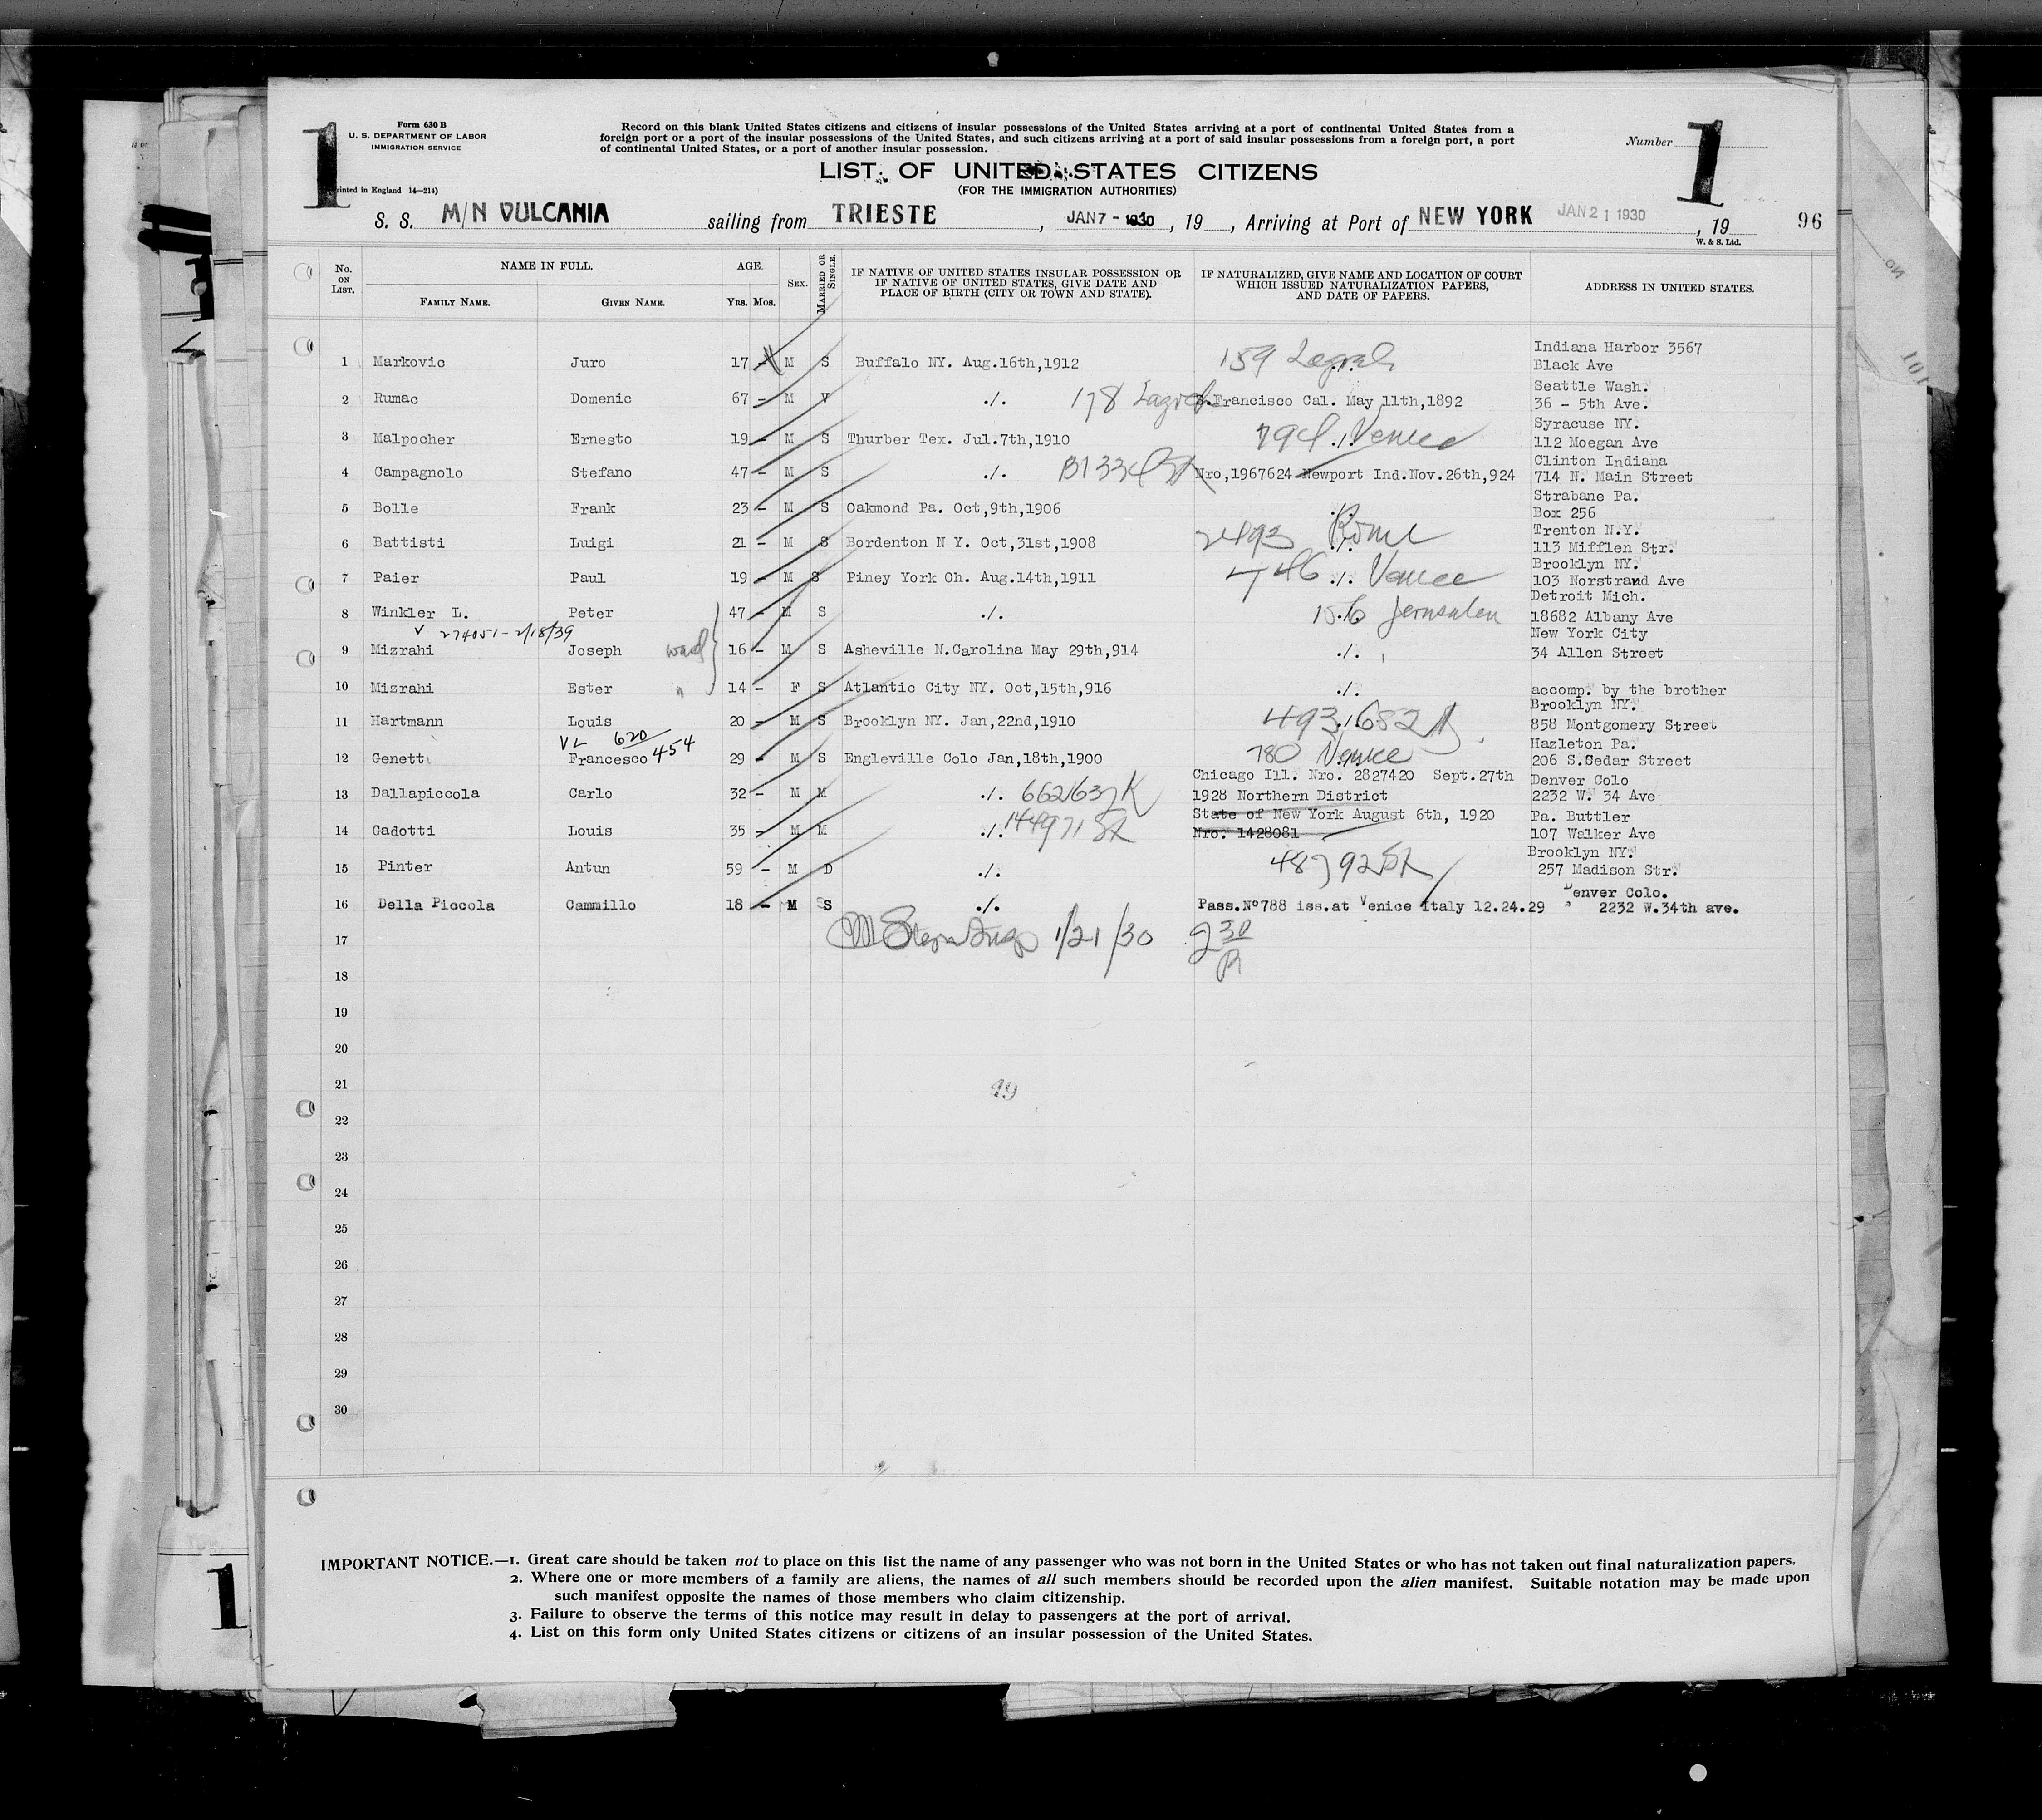 1
Form 630 B
U. S. DEPARTMENT OF LABOR
IMMIGRATION SERVICE
rinted in England 14—214)
Record on this blank United States citizens and citizens of insular possessions of the United States arriving at a port of continental United States from a
foreign port or a port of the insular possessions of the United States, and such citizens arriving at a port of said insular possessions from a foreign port, a port
of continental United States, or a port of another insular possession.
Number 1
LIST OF UNITED STATES CITIZENS
(FOR THE IMMIGRATION AUTHORITIES)
S. S. M/N VULCANIA sailing from TRIESTE, JAN 7 - 1930, 19, Arriving at Port of NEW YORK JAN 21 1930, 19 96
W. & S. Ltd.
No. ON LIST. NAME IN FULL. FAMILY NAME. GIVEN NAME. AGE. Yrs. Mos. SEX. MARRIED OR SINGLE. IF NATIVE OF UNITED STATES INSULAR POSSESSION OR IF NATIVE OF UNITED STATES, GIVE DATE AND PLACE OF BIRTH (CITY OR TOWN AND STATE). IF NATURALIZED, GIVE NAME AND LOCATION OF COURT WHICH ISSUED NATURALIZATION PAPERS, AND DATE OF PAPERS. ADDRESS IN UNITED STATES.
Indiana Harbor 3567
1 Markovic Juro 17 - M S Buffalo NY. Aug.16th,1912 159 Zagreb ./. Black Ave
Seattle Wash.
2 Rumac Domenic 67 - M V ./. 178 Zagreb S.Francisco Cal. May 11th,1892 36 - 5th Ave.
Syracuse NY.
3 Malpocher Ernesto 19 - M S Thurber Tex. Jul.7th,1910 794 ./. Venice 112 Moegan Ave
Clinton Indiana
4 Campagnolo Stefano 47 - M S ./. Nro,1967624 Newport Ind.Nov.26th,924 714 N. Main Street
Strabane Pa.
5 Bolle Frank 23 - M S Oakmond Pa. Oct,9th,1906 ./. Box 256
Trenton N.Y.
6 Battisti Luigi 21 - M S Bordenton N Y. Oct,31st,1908 2493 Rome ./. 113 Mifflen Str.
Brooklyn NY.
7 Paier Paul 19 - M S Piney York Oh. Aug.14th,1911 746 ./. Venice 103 Norstrand Ave
Detroit Mich.
8 Winkler L. Peter 47 - M S ./. Jerusalem 18682 Albany Ave
V 274051 - 2/18/39
New York City
9 Mizrahi Joseph 16 - M S Asheville N.Carolina May 29th,914 ./. 34 Allen Street
10 Mizrahi Ester " 14 - F S Atlantic City NY. Oct,15th,916 ./. accomp. by the brother
Brooklyn NY.
11 Hartmann Louis 20 - M S Brooklyn NY. Jan,22nd,1910 493,682 858 Montgomery Street
VL 620
454
Hazleton Pa.
12 Genett Francesco 29 - M S Engleville Colo Jan,18th,1900 780 Venice 206 S.Cedar Street
Chicago Ill. Nro. 2827420 Sept.27th Denver Colo
13 Dallapiccola Carlo 32 - M M ./. 1928 Northern District 2232 W. 34 Ave
State of New York August 6th, 1920 Pa. Buttler
14 Cadotti Louis 35 - M M ./. Nro. 1428081 107 Walker Ave
Brooklyn NY.
15 Pinter Antun 59 - M D ./. 257 Madison Str.
Denver Colo.
16 Della Piccola Cammillo 18 - M S ./. Pass.Nº788 iss.at Venice Italy 12.24.29 2232 W.34th ave.
17 1/21/30 2 30
18
19
20
21 49
22
23
24
25
26
27
28
29
30
IMPORTANT NOTICE.—1. Great care should be taken not to place on this list the name of any passenger who was not born in the United States or who has not taken out final naturalization papers.
2. Where one or more members of a family are aliens, the names of all such members should be recorded upon the alien manifest. Suitable notation may be made upon
such manifest opposite the names of those members who claim citizenship.
3. Failure to observe the terms of this notice may result in delay to passengers at the port of arrival.
4. List on this form only United States citizens or citizens of an insular possession of the United States.
1